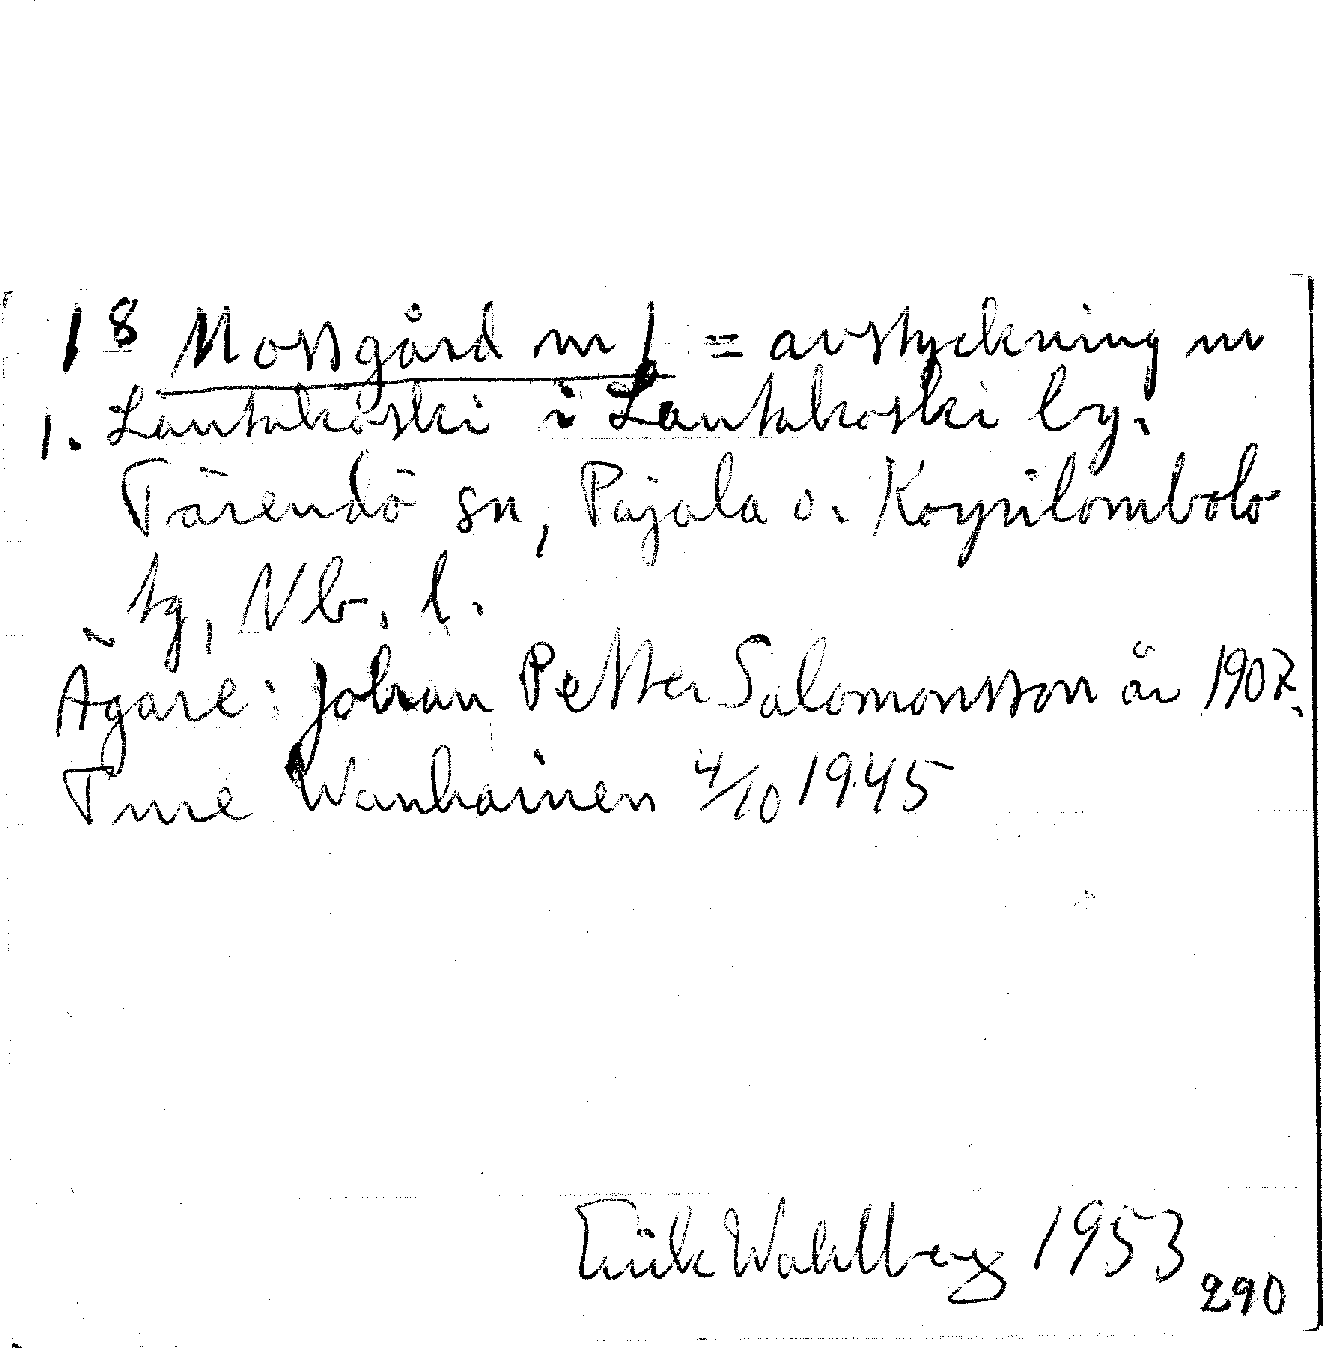 1 8 Mossgård nr 1 = avstyckning nr
1. Lautakoski i Lautakoski by.
Tärendö sn, Pajala o. Korpilombolo
tg, Nb. l.
Ägare: Johan Petter Salomonsson år 1907.
Ture Wanhainen 4/10 1945
Erik Wahlberg 1953
290